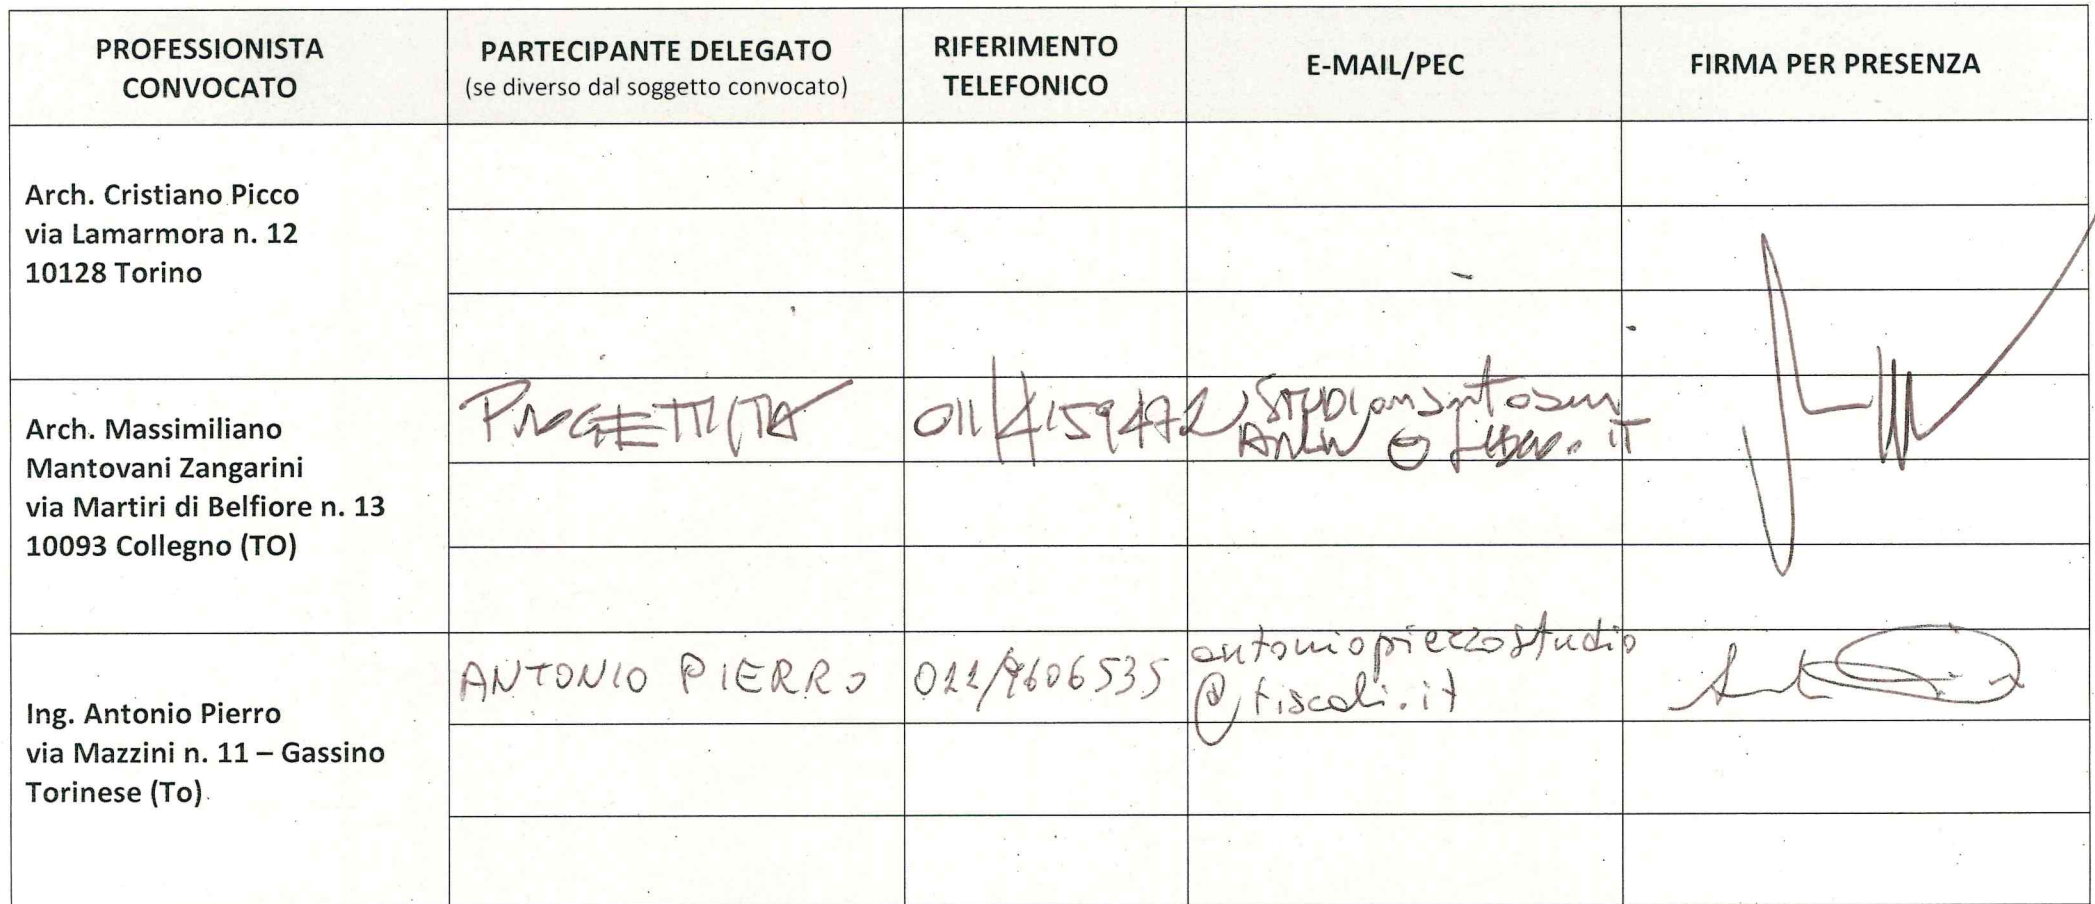 PROFESSIONISTA
CONVOCATO
PARTECIPANTE DELEGATO
(se diverso dal soggetto convocato)
RIFERIMENTO
TELEFONICO
E-MAIL/PEC
FIRMA PER PRESENZA
Arch. Cristiano Picco
via Lamarmora n. 12
10128 Torino
Arch. Massimiliano
Mantovani Zangarini
via Martiri di Belfiore n. 13
10093 Collegno (TO)
PROGETTISTA
011/4159472
Ing. Antonio Pierro
via Mazzini n. 11 – Gassino
Torinese (To)
ANTONIO PIERRO
011/9606535
antoniopierrostudio
@tiscali.it